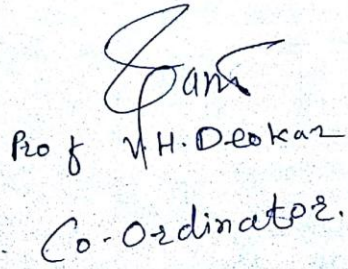 Prof V.H. Deokar
Co-Ordinator.